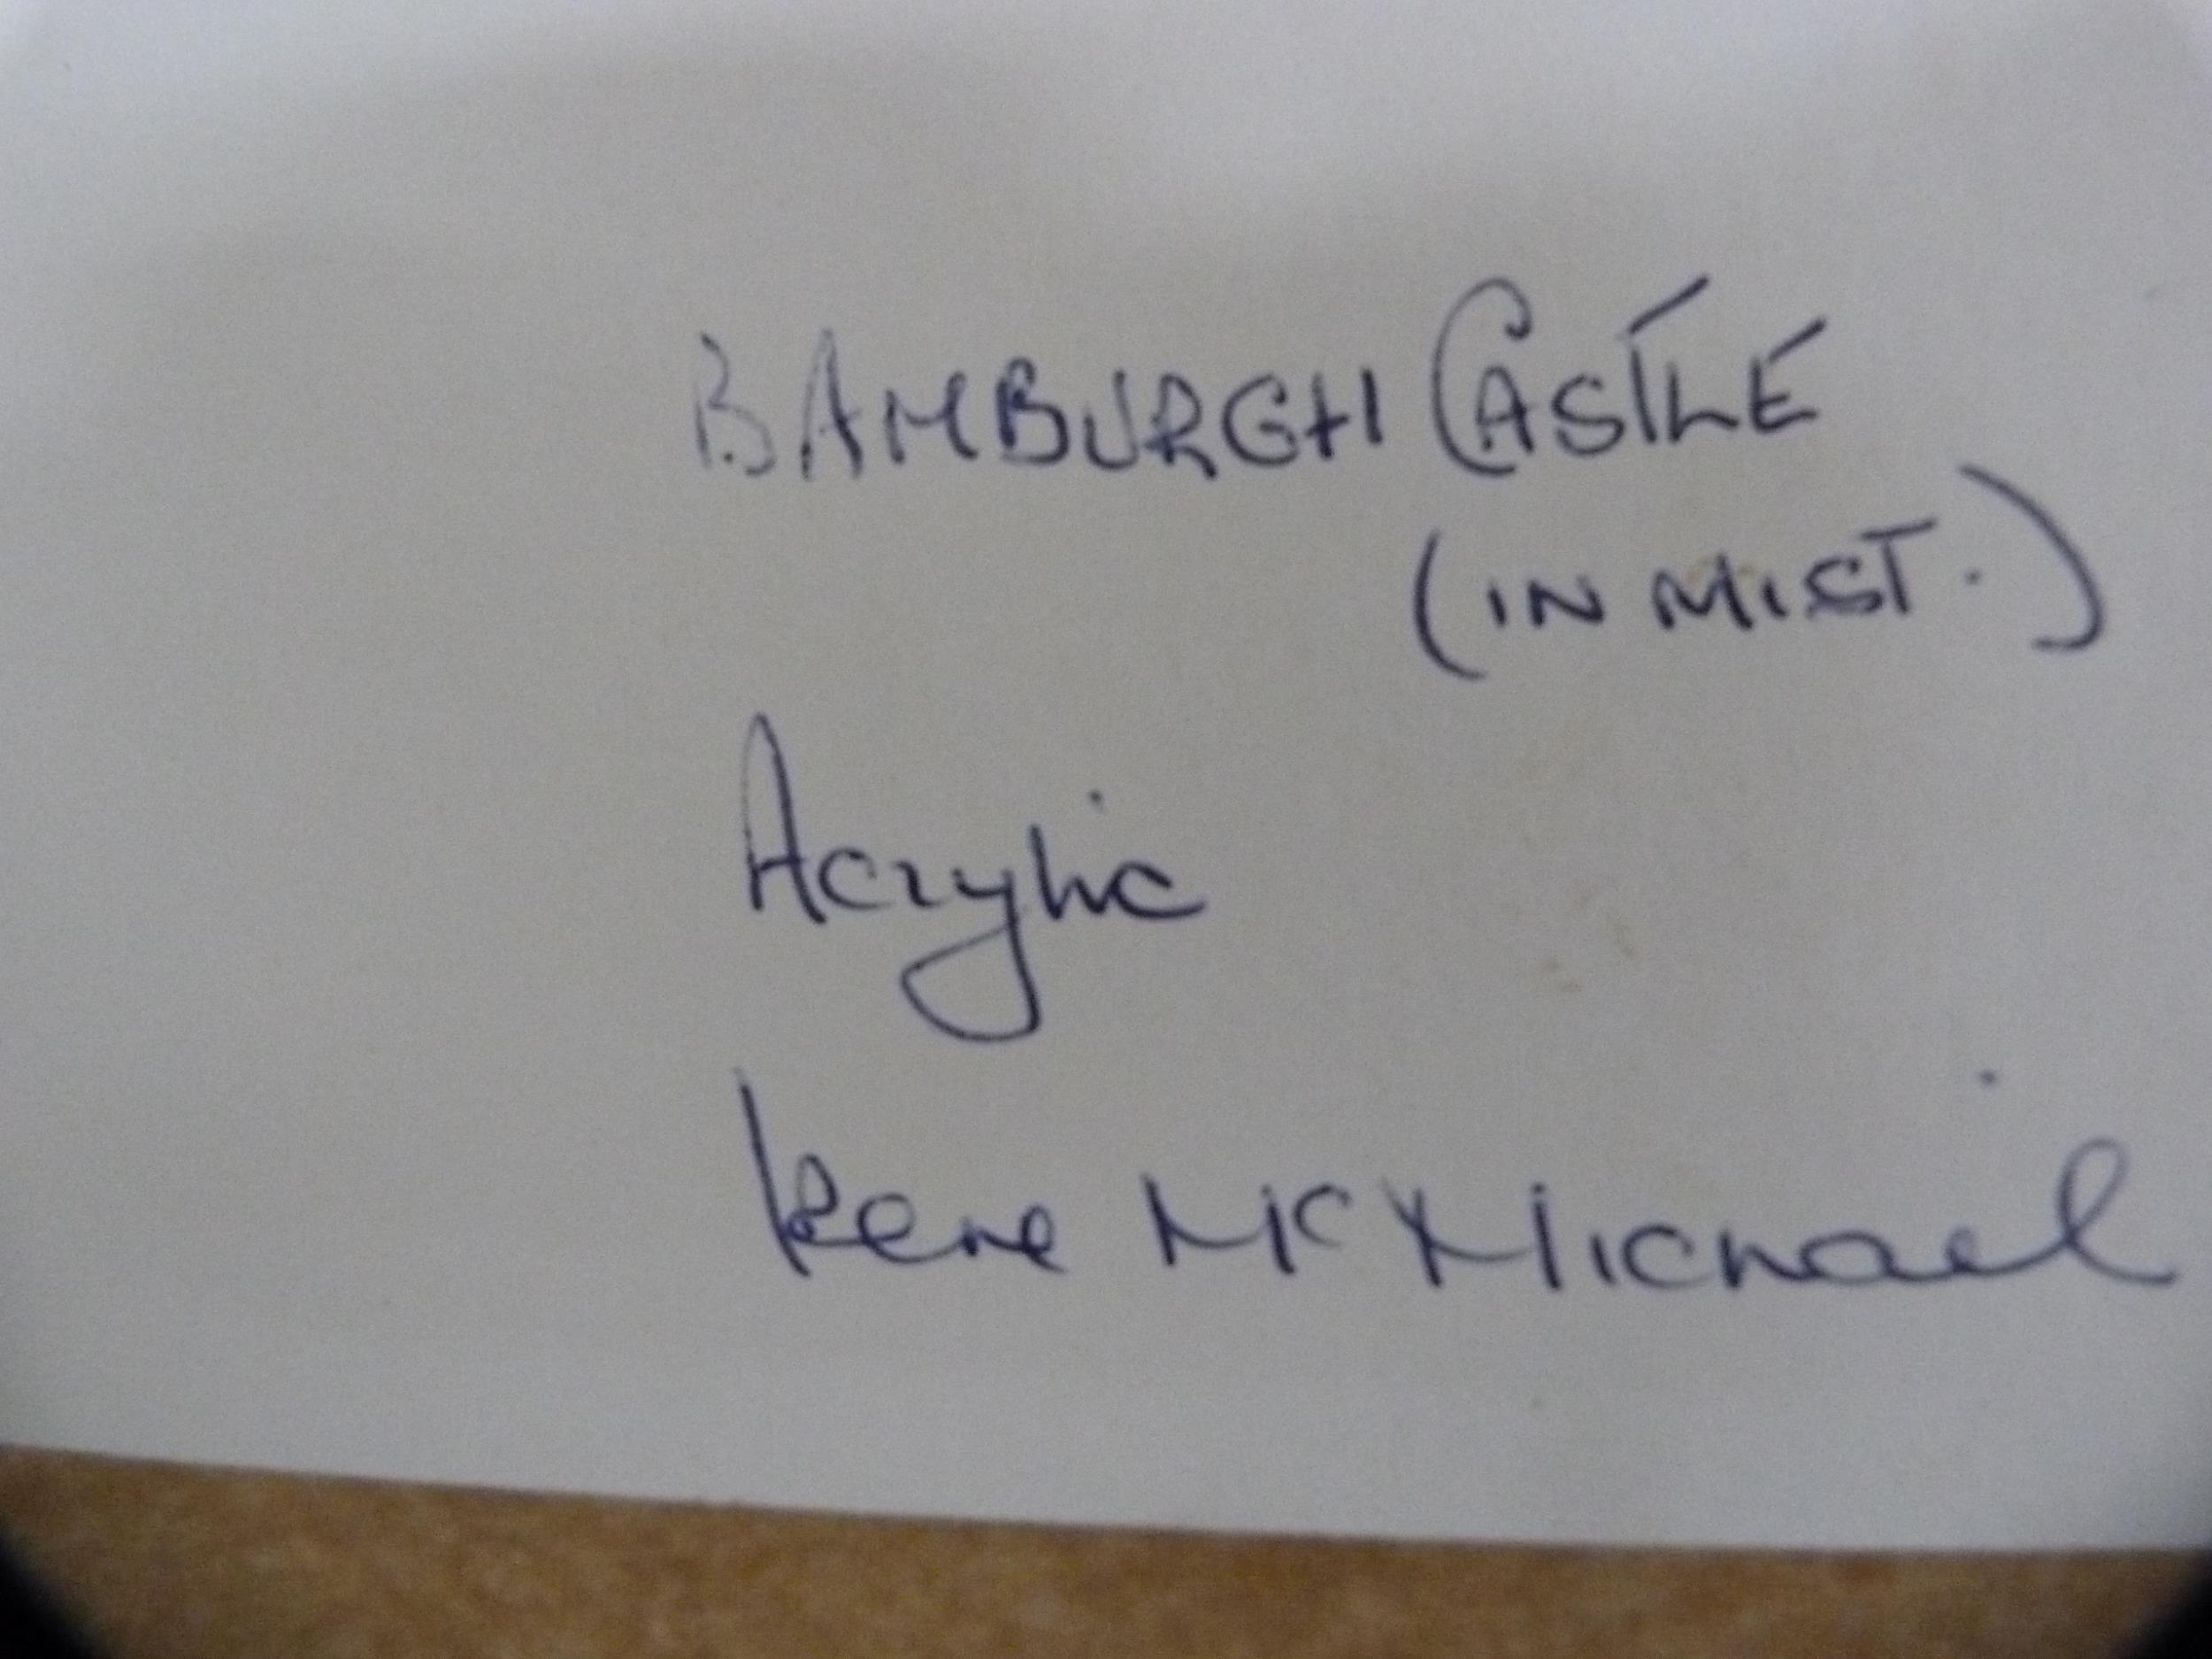 BAMBURGH CASTLE
(IN MIST.)
Acrylic
Irene McMichael